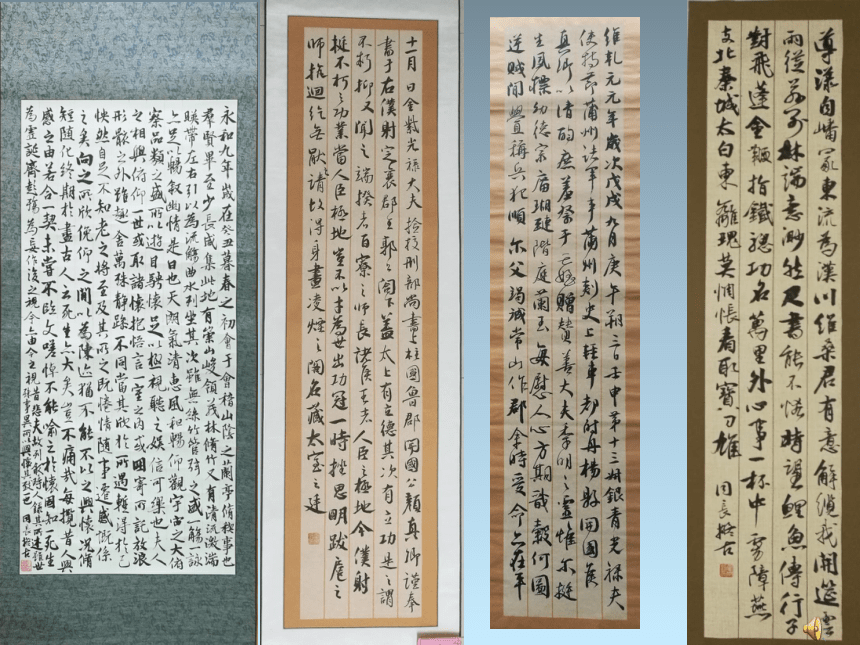 永和九年歲在癸丑暮春之初會于會稽山陰之蘭亭脩稧事也
羣賢畢至少長咸集此地有崇山峻領茂林脩竹又有清流激湍
暎帶左右引以為流觴曲水列坐其次雖無絲竹管弦之盛一觴一詠
上足以暢叙幽情是日也天朗氣清惠風和暢仰觀宇宙之大俯
察品類之盛所以遊目騁懷足以極視聽之娛信可樂也夫人
之相與俯仰一世或取諸懷抱悟言一室之內或因寄所託放浪
形骸之外雖趣舍萬殊靜躁不同當其欣於所遇輙得於己
怏然自足不知老之將至及其所之既惓情隨事遷感慨係
之矣向之所欣俛仰之間以為陳迹猶不能不以之興懷況脩
短隨化終期於盡古人云死生亦大矣豈不痛哉每攬昔人興
感之由若合一契未嘗不臨文嗟悼不能喻之於懷固知一死生
為虛誕齊彭殤為妄作後之視今亦由今之視昔悲夫故列叙時人錄其所述雖世
殊事異所以興懷其致一也 因長擬古
十一月日金紫光祿大夫檢校刑部尚書上柱國魯郡開國公顏真卿謹奉
書于右僕射定襄郡王郭公閣下蓋太上有立德其次有立功是之謂
不朽抑又聞之端揆者百寮之師長諸侯王者人臣之極地今僕射
挺不朽之功業當人臣極地豈不以才為世出功冠一時挫思明跋扈之
師抗迴紇無厭之請故得身畫凌煙之閣名藏太室之廷
維乾元元年歲次戊戌九月庚午朔三日壬申第十三叔銀青光祿夫
使持節蒲州諸軍事蒲州刺史上輕車都尉丹楊縣開國侯
真卿以清酌庶羞祭于亡姪贈贊善大夫季明之靈惟爾挺
生夙摽幼德宗廟瑚璉階庭蘭玉每慰人心方期戩穀何圖
逆賊間釁稱兵犯順爾父竭誠常山作郡余時受命亦在平
導漾自嶓冢東流為漢川維桑君有意解纜我開筵雲
雨從茲別林端意渺然尺書能不悋時望鯉魚傳行子
對飛蓬金鞭指鐵驄功名萬里外心事一杯中虜障燕
支北秦城太白東離魂莫惆悵看取寶刀雄 因長擬古